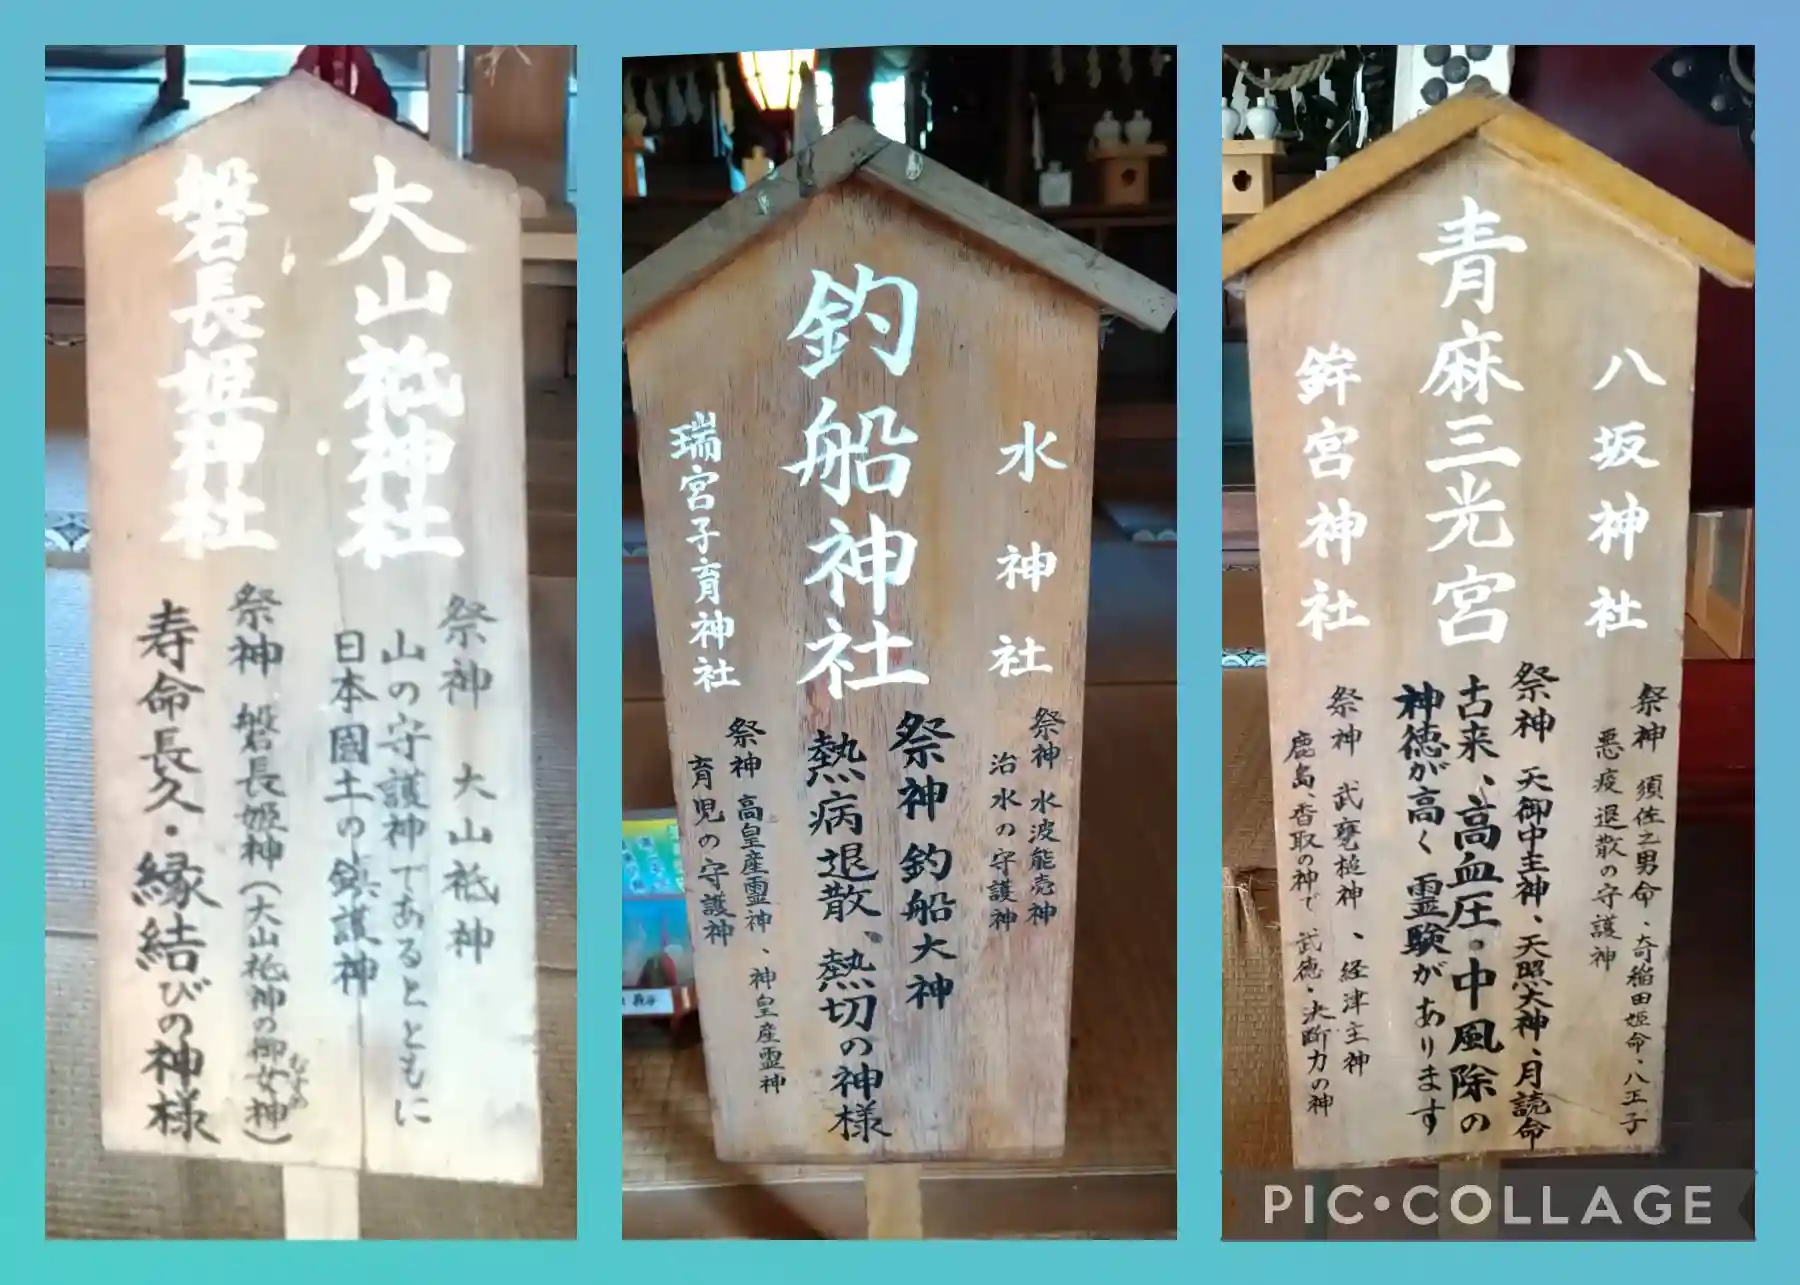 大山祇神社
祭神 大山祇神
山の守護神であるとともに
日本国土の鎮護神
磐長姫神社
祭神 磐長姫神(大山祇神の御女神)
むすめ
寿命長久・縁結びの神様
水神社
祭神 水波能売神
治水の守護神
釣船神社
祭神 釣船大神
熱病退散、熱切の神様
瑞宮子育神社
祭神 高皇産霊神、神皇産霊神
育児の守護神
八坂神社
祭神 須佐之男命、奇稲田姫命、八王子
悪疫退散の守護神
青麻三光宮
祭神 天御中主神、天照大神、月読命
古来、高血圧・中風除の
神徳が高く霊験があります
鉾宮神社
祭神 武甕槌神、経津主神
鹿島、香取の神で武徳・決断力の神
PIC•COLLAGE